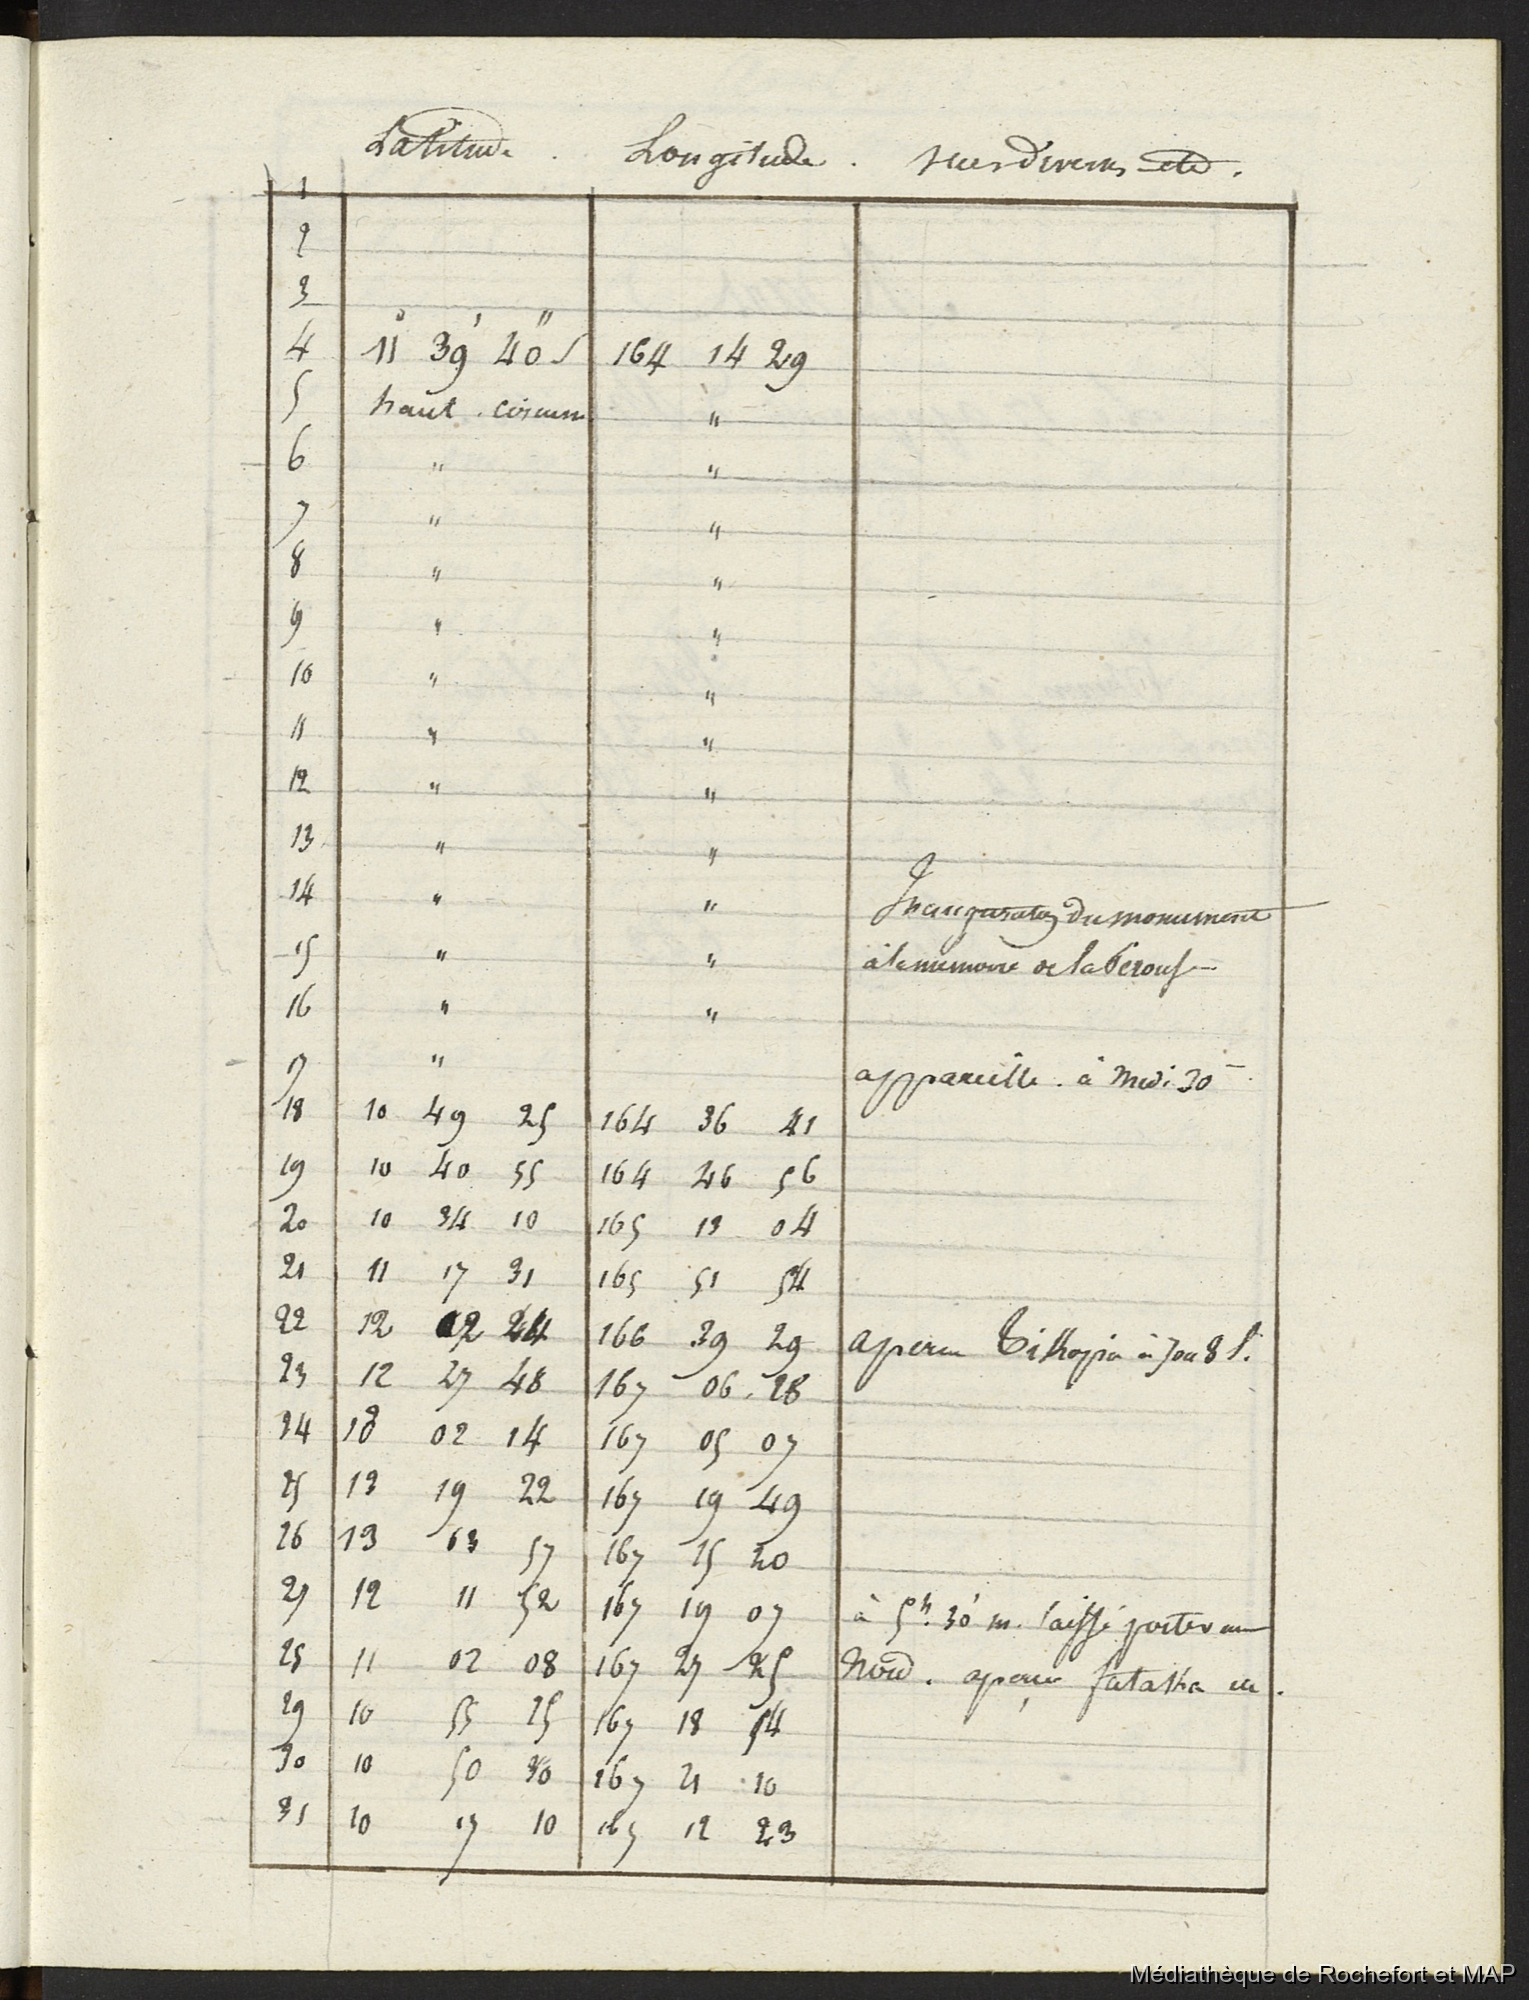 Latitude. Longitude. vues diverses etc.
1
2
3
4 11° 39' 40" S 164 14 29
5 haut. circum "
6 " "
7 " "
8 " "
9 " "
10 " "
11 " "
12 " "
13 " "
14 " " Inauguration du monument
15 " " à la memoire de la Pérouse
16 " "
17 " appareillé. à Midi 30
18 10 49 25 164 36 41
19 10 40 55 164 46 56
20 10 34 10 165 13 04
21 11 17 31 165 51 54
22 12 02 24 166 39 29 aperçu Tikkopia à 7 ou 8 l.
23 12 27 48 167 06 28
24 13 02 14 167 05 07
25 13 19 22 167 19 49
26 13 03 57 167 15 20
27 12 11 52 167 19 07 à 5h. 30' m. laissé porter au
28 11 02 08 167 27 25 Nord. aperçu fataka
29 10 55 25 167 18 54
30 10 50 30 167 21 10
31 10 17 10 165 12 23
Médiathèque de Rochefort et MAP